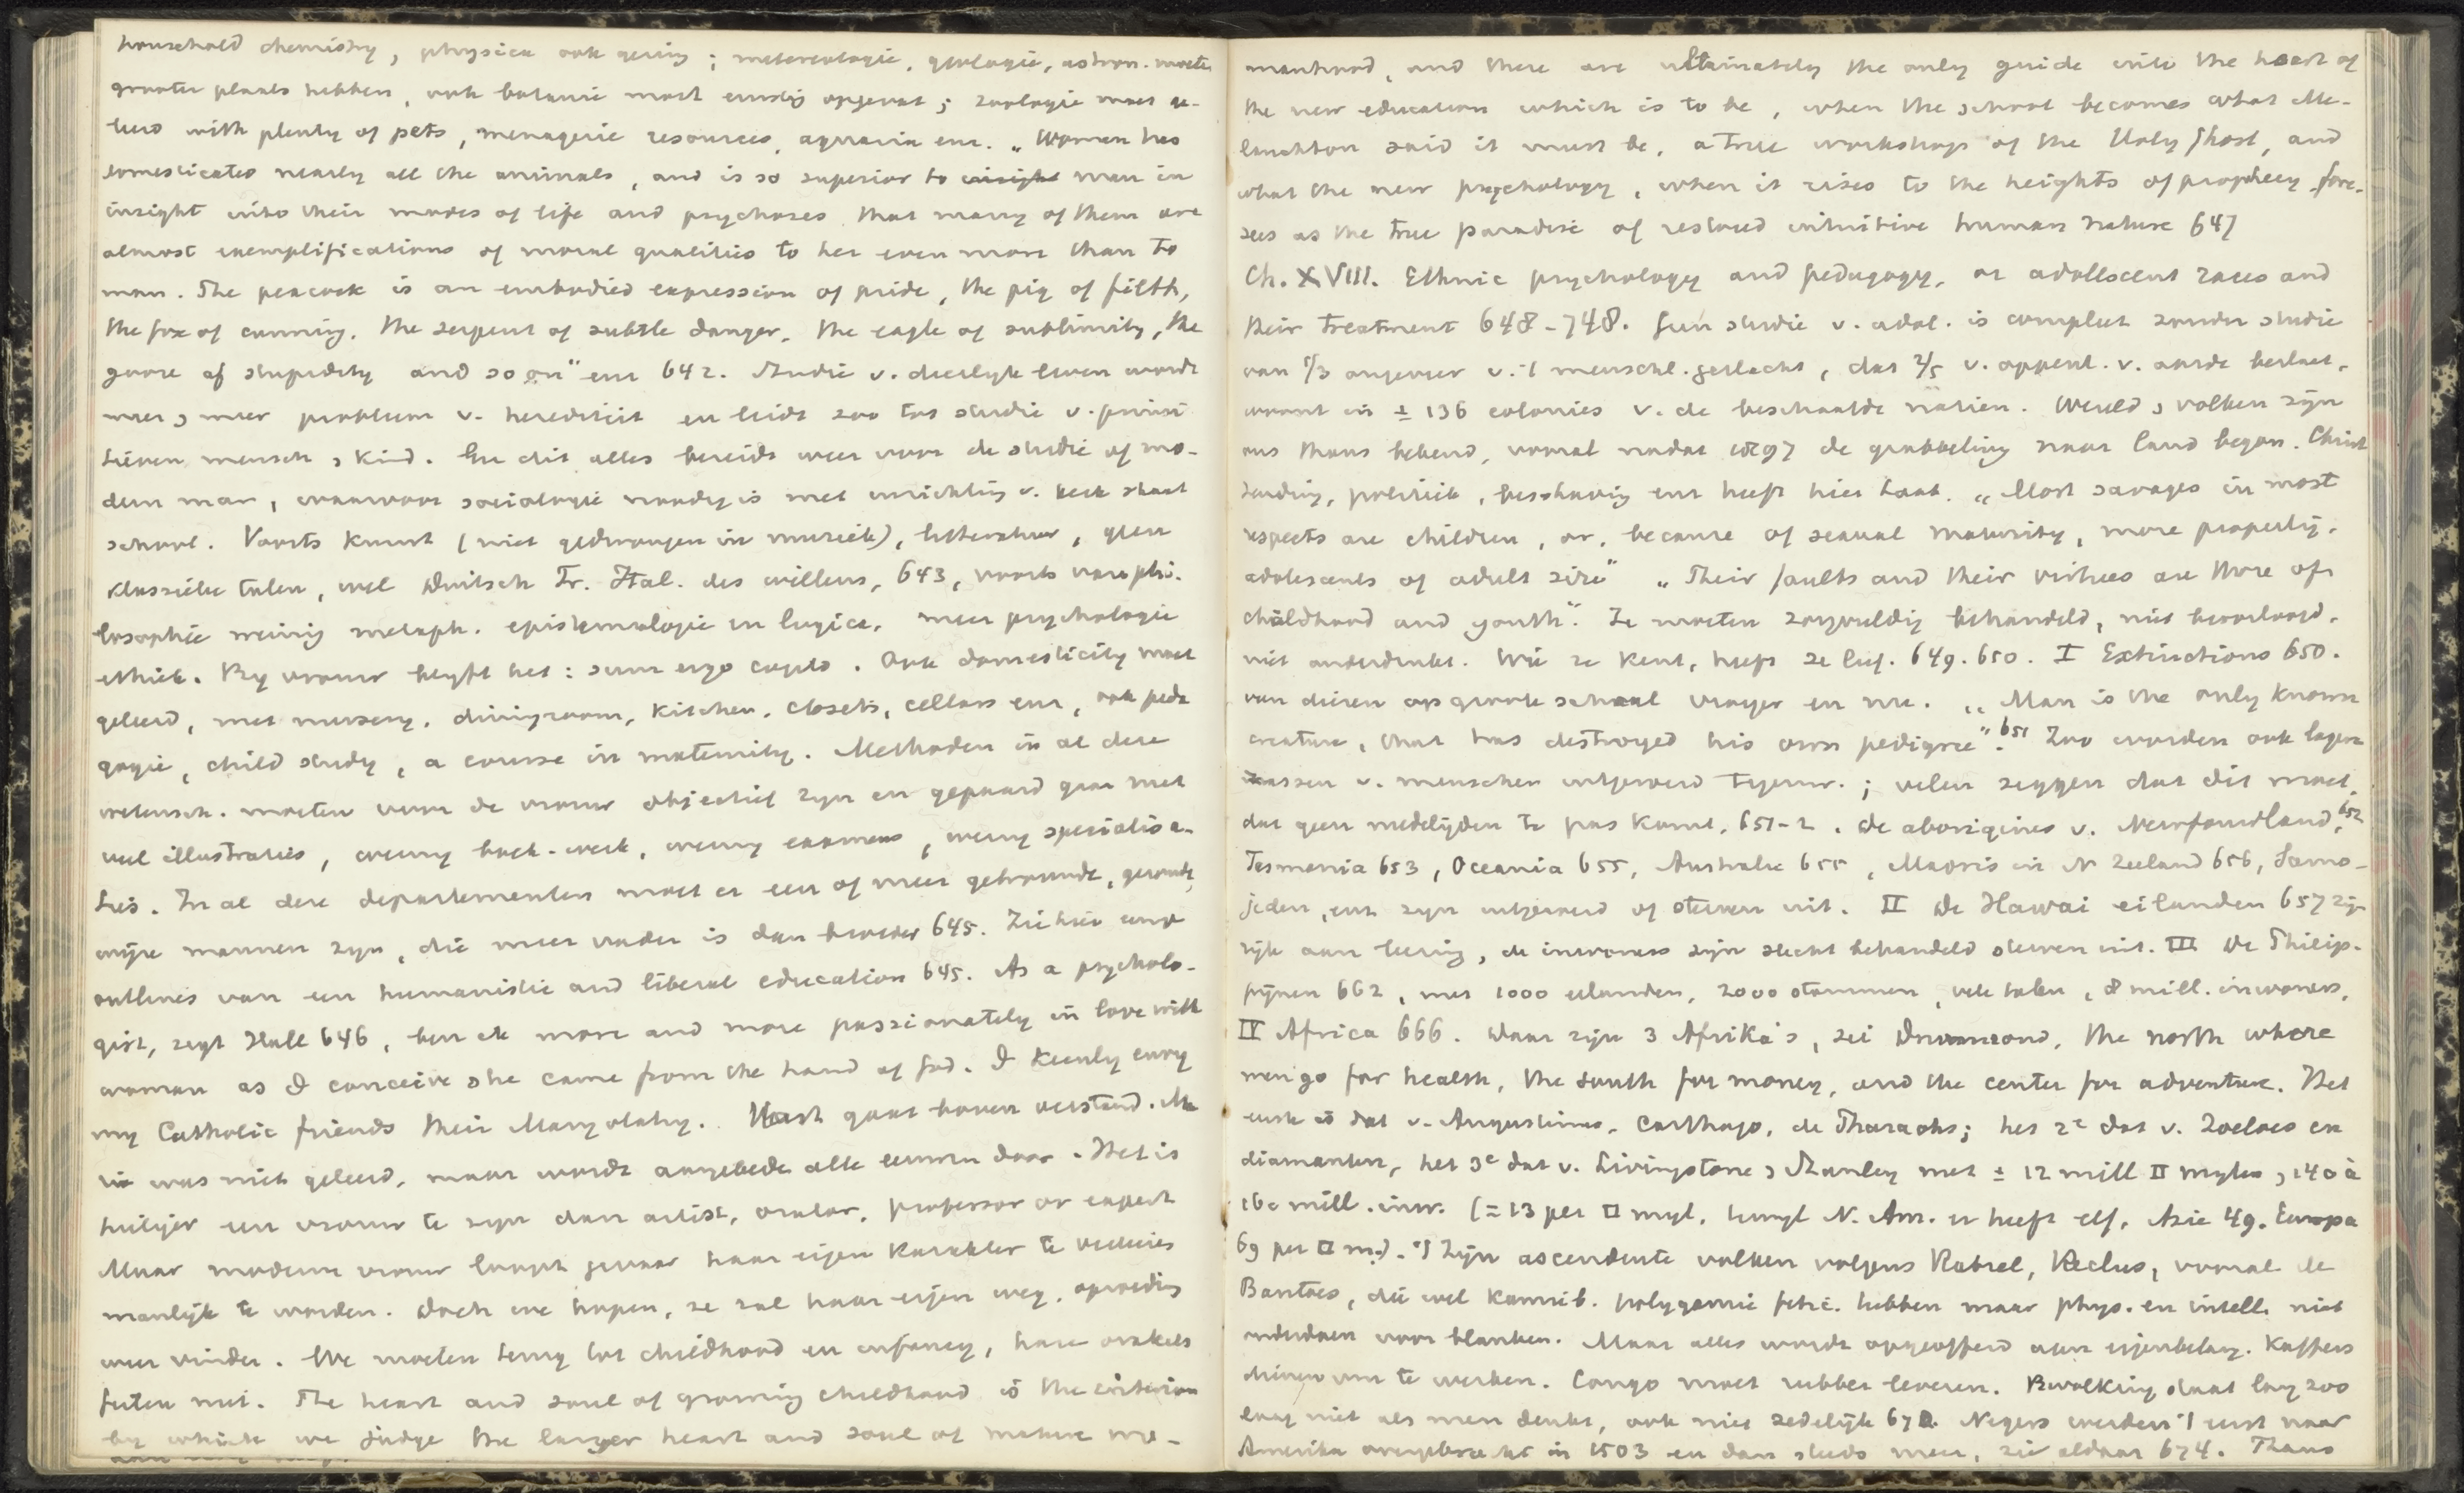 household chemistry, physica ook gering; metereologie, geologie, astron. moeten
grooter plaats hebben, ook botanie mort ernstig opgevat; zoologie moet ge-
leerd with plenty of pets, menagerie resources, aquaria enz. „Woman has
domesticated nearly all the animals, and is so superior to insight man in
insight into their modes of life and psychoses that many of them are
almost exemplifications of moral qualities to her even more than to
man. The peacock is an embodied expression of pride, the pig of filth,
the fox of cunning, the serpent of subtle danger, the eagle of sublimity, the
goose of stupidity and so on" enz 642. Studie v. dierlijk leven wordt
meer, meer probleem v. herediteit en leidt zoo tot studie v. primi
tieven mensch, kind. En dit alles bereidt weer voor de studie of mo-
dern man, waarvoor sociologie noodig is met inrichting v. kerk staat
school. Voorts kunst (niet gedwongen in muziek), litteratuur, geen
klassieke talen, wel Duitsch Fr. Ital. des willens, 643, voorts van phi-
losophie weinig metaph. epistemologie en logica, meer psychologie
ethiek. By vrouw blyft het: sum ergo cogito. Ook domesticity moet
geleerd, met nursery, diningroom, kitchen, closets, cellars enz, ook peda
gogie, child study, a course in maternity. Methoden in al deze
wetensch. moeten voor de vrouw objectief zyn en gepaard gaan met
veel illustraties, weinig boek-werk, weinig examens, weinig specialisa-
tie. In al deze departementen moet er een of meer getrouwde, gezonde,
wijze mannen zyn, die meer vader is dan broeder 645. Ziehier eenige
outlines van een humanistic and liberal education 645. As a psycholo-
gist, zegt Hall 646, ben ik more and more passionately in love with
woman as I conceive she came from the hand of God. I keenly envy
my Catholic friends their Maryolatry. Hart gaat boven verstand. Ma
ria was niet geleerd, maar wordt aangebeden alle eeuwen door. Het is
heiliger een vrouw te zyn dan artist, orator, professor or expert
Maar moderne vrouw loopt gevaar haar eigen karakter te verliezen
manlijk te worden. Doch we hopen, ze zal haar eigen weg, opvoeding
weer vinden. We moeten terug tot childhood en infancy, hare orakels
feilen niet. The heart and soul of growing childhood is the criterion
by which we judge the larger heart and soul of mature wo-
manhood, and these are ultimately the only guide into the heart of
the new education which is to be, when the school becomes what Me-
lanchton said it must be, a true workshop of the Holy Ghost, and
what the new psychology, when it rises to the heights of prophecy, fore-
sees as the true paradise of restored intuitive human nature 647
Ch. XVIII. Ethnic psychology and pedagogy, or adollscent races and
their treatment 648-748. Geen studie v. adol. is compleet zonder studie
van 1/3 ongeveer v. 't menschl. geslacht, dat 2/5 v. oppervl. v. aarde beslaat,
woont in ± 136 colonies v. de beschaafde natien. Wereld, volken zijn
ons thans bekend, vooral nadat 1897 de grabbeling naar land began. Christ
zending, politiek, beschaving enz heeft hier taak. „Most savages in most
respects are children, or, because of sexual maturity, more properly,
adolescents of adult size" „Their faults and their virtues are those of
childhood and youth". Ze moeten zorgvuldig behandeld, niet beoorloogd,
niet onderdrukt. Wie ze kent, heeft ze lief. 649. 650. I Extinctions 650.
van dieren op groote schaal vroeger en nu. „Man is the only known
creature, that has destroyed his own pedigree". 651 Zoo worden ook lagere
rassen v. menschen uitgeroeid tegenw.; velen zeggen dat dit moet,
dat geen medelijden te pas komt, 651-2. De aborigines v. Newfoundland, 652
Tasmania 653, Oceania 655, Australie 655, Maoris in N Zeeland 656, Samo-
jeden, enz zyn uitgeroeid of sterven uit. II De Hawai eilanden 657 zijn
rijk aan leering, de inwoners zijn slecht behandeld sterven uit. III De Philip-
pijnen 662, met 1000 eilanden, 2000 stammen, vele talen, 8 mill. inwoners.
IV Africa 666. Daar zijn 3 Afrika's, zei Drummond, the north where
men go for health, the south for money, and the center for adventure. Het
eerste is dat v. Augustinus, Carthago, de Pharaohs; het 2e dat v. Zoeloes en
diamanten, het 3e dat v. Livingstone, Stanley met ± 12 mill □ mylen, 140 à
160 mill. inw. (= 13 per □ myl, terwyl N. Am. er heeft elf, Azie 49. Europa
69 per □ m.). 't Zijn ascendente volken volgens Ratzel, Reclus, vooral de
Bantoes, die wel kannib. polygamie fetic. hebben maar phys. en intell. niet
onderdoen voor blanken. Maar alles wordt opgeofferd aan eigenbelang. Kaffers
dienen om te werken. Congo moet rubber leveren. Bevolking staat lang zoo
laag niet als men denkt, ook niet zedelijk 672. Negers werden 't eerst naar
Amerika overgebracht in 1503 en dan steeds meer, zie aldaar 674. Thans